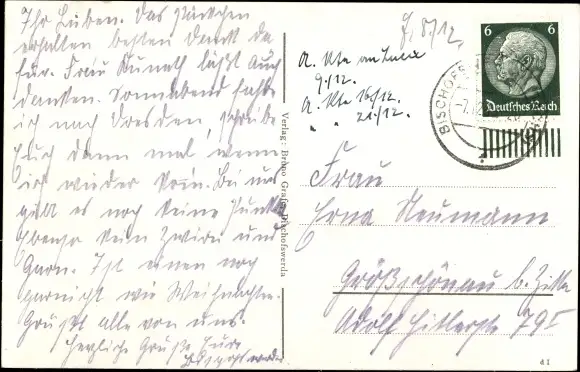 Ihr Lieben. Das Päckchen
erhalten besten Dank da
für. Frau Kunath läßt Auch
danken. Sonnabend fahre
ich nach Dresden, schreibe
Euch dann mal, wenn
ich wieder bin. Bei uns
gibt es noch keine
Ebenso kein Zwirn und
Garn. Ist einen noch
garnicht wie Weihnachten.
Grüßt alle von uns.
Herzliche Grüße Eure
Verlag: Bruno Grafe, Bischofswerda
8/12.
A. Kte an
9./12.
A. Kte 16/12.
" " 21/12.
6 6
Deutsches Reich
BISCHOFS
Frau
Erna Neumann
Größschönau b. Zitta
Adolf Hitlerstr 79 I